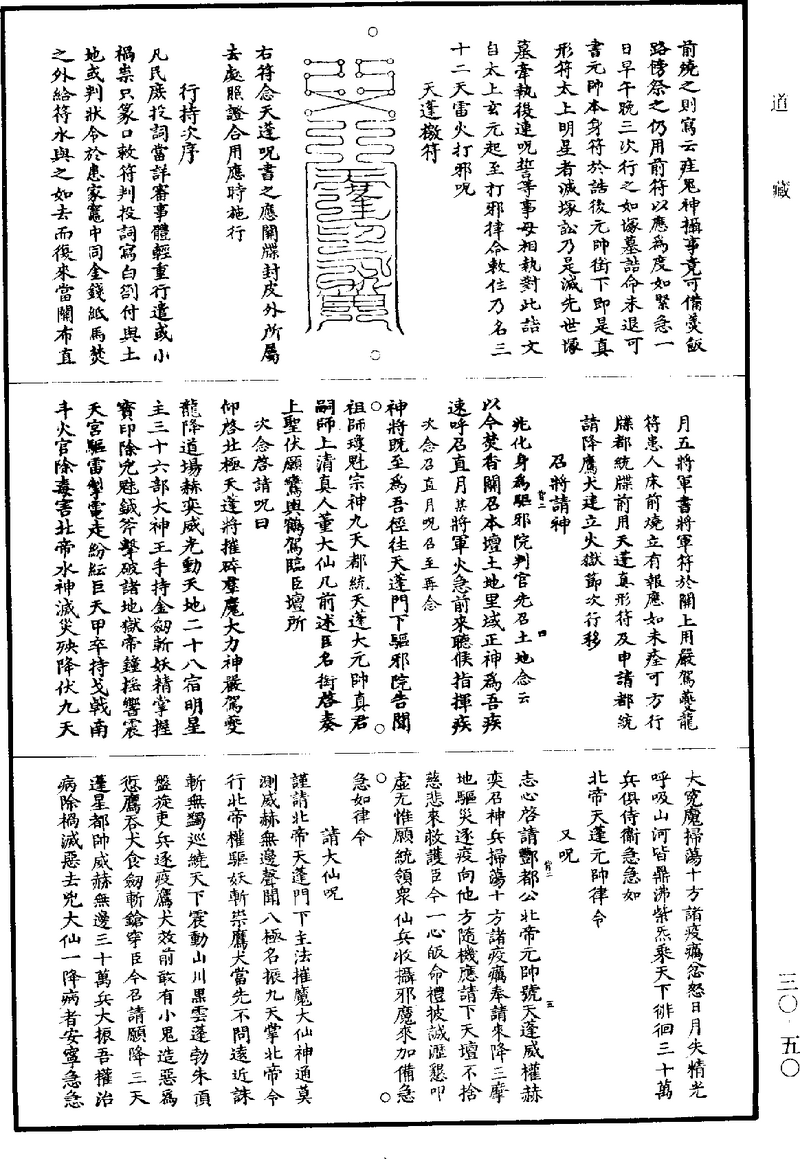 道藏
前燒之則寫云疰鬼神攝事竟可備羹飯
路傍祭之仍用前符以應為度如緊急一
日早午晚三次行之如塚墓誥命未退可
書元帥本身符於誥後元帥銜下即是真
形符太上明星者滅塚訟乃是滅先世塚
墓牽執後連呪誓等事毋相執對此誥文
自太上玄元起至打邪律命敕住乃名三
十二天雷火打邪呪
天蓬檄符
右符念天蓬呪書之應關牒封皮外所屬
去處照證合用應時施行
行持次序
凡民庶投詞當詳審事體輕重行遣或小
禍祟只篆口敕符判投詞寫白劄付與土
地或判狀令於患家竈中同金錢紙馬焚
之外給符水與之如去而復來當關布直
月五將軍書將軍符於關上用嚴駕夔龍
符患人床前燒立有報應如未痊可方行
牒都統牒前用天蓬真形符及申請都統
請降鷹犬建立火獄節次行移
召將請神
兆化身為驅邪院判官先召土地念云
以今焚香關召本壇土地里域正神為吾疾
速呼召直月某將軍火急前來聽候指揮疾
次念召直月呪召至再念
神將既至為吾徑往天蓬門下驅邪院告聞
祖師瓊魁宗神九天都統天蓬大元帥真君
嗣師上清真人董大仙几前述臣名銜啓奏
上聖伏願鸞輿鶴駕臨臣壇所
次念啓請呪曰
仰啓北極天蓬將摧碎羣魔大力神嚴駕夔
龍降道場赫奕威光動天地二十八宿明星
主三十六部大神王手持金劒斬妖精掌握
寶印除兇魅鉞斧擊破諸地獄帝鐘搖響震
天宮驅雷掣電走紛紜巨天甲卒持戈戟南
斗火官除毒害北帝水神滅災殃降伏九天
大冤魔掃蕩十方諸疫癘忿怒日月失精光
呼吸山河皆鼎沸紫炁乘天下徘徊三十萬
兵俱侍衞急急如
北帝天蓬元帥律令
又呪
志心啓請酆都公北帝元帥號天蓬威權赫
奕召神兵掃蕩十方諸疫癘奉請來降三摩
地驅災逐疫向他方隨機應請下天壇不捨
慈悲來救護臣今一心皈命禮披誠瀝懇叩
虛无惟願統領衆仙兵收攝邪魔來加備急
急如律令
請大仙呪
謹請北帝天蓬門下主法摧魔大仙神通莫
測威赫無邊聲聞八極名振九天掌北帝令
行北帝權驅妖斬祟鷹犬當先不問遠近誅
斬無蠲巡繞天下震動山川黒雲蓬勃朱頂
盤旋吏兵逐疫鷹犬效前敢有小鬼造惡為
愆鷹吞犬食劒斬鎗穿臣今召請願降三天
蓬星都帥威赫無邊三十萬兵大振吾權治
病除禍滅惡去兇大仙一降病者安寧急急
三〇·五〇